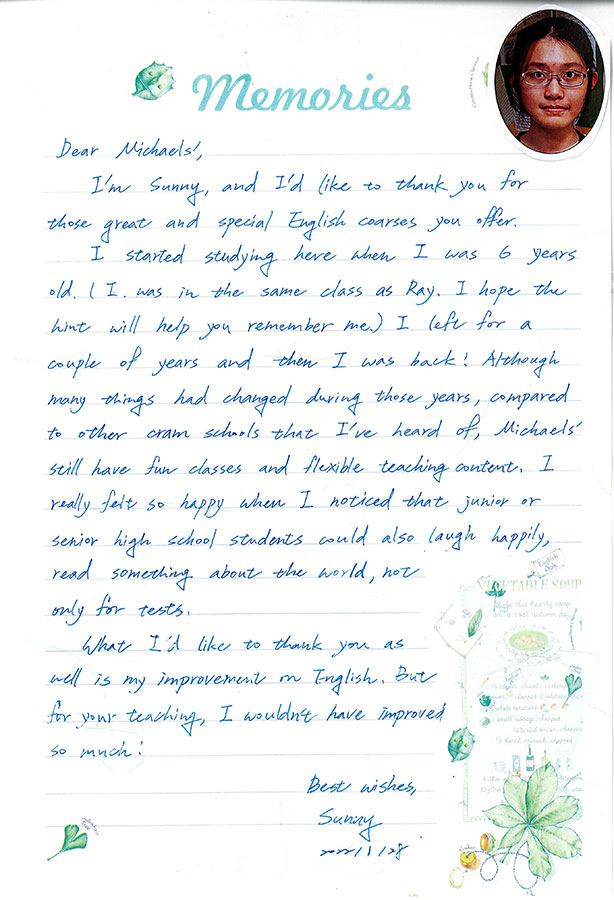 Memories
Dear Michaels',
I'm Sunny, and I'd like to thank you for
those great and special English coarses you offer.
I started studying here when I was 6 years
old. ( I. was in the same class as Ray. I hope the
hint will help you remember me.) I left for a
couple of years and then I was back! Although
many things had changed during those years, compared
to other cram schools that I've heard of, Michaels'
still have fun classes and flexible teaching content. I
really felt so happy when I noticed that junior or
senior high school students could also laugh happily,
read something about the world, not
only for tests.
What I'd like to thank you as
well is my improvement on English. But
for your teaching, I wouldn't have improved
so much!
Best wishes,
Sunny
2022/1/28
English
VEGETABLE SOUP
Make this hearty soup
on a cool autumn day